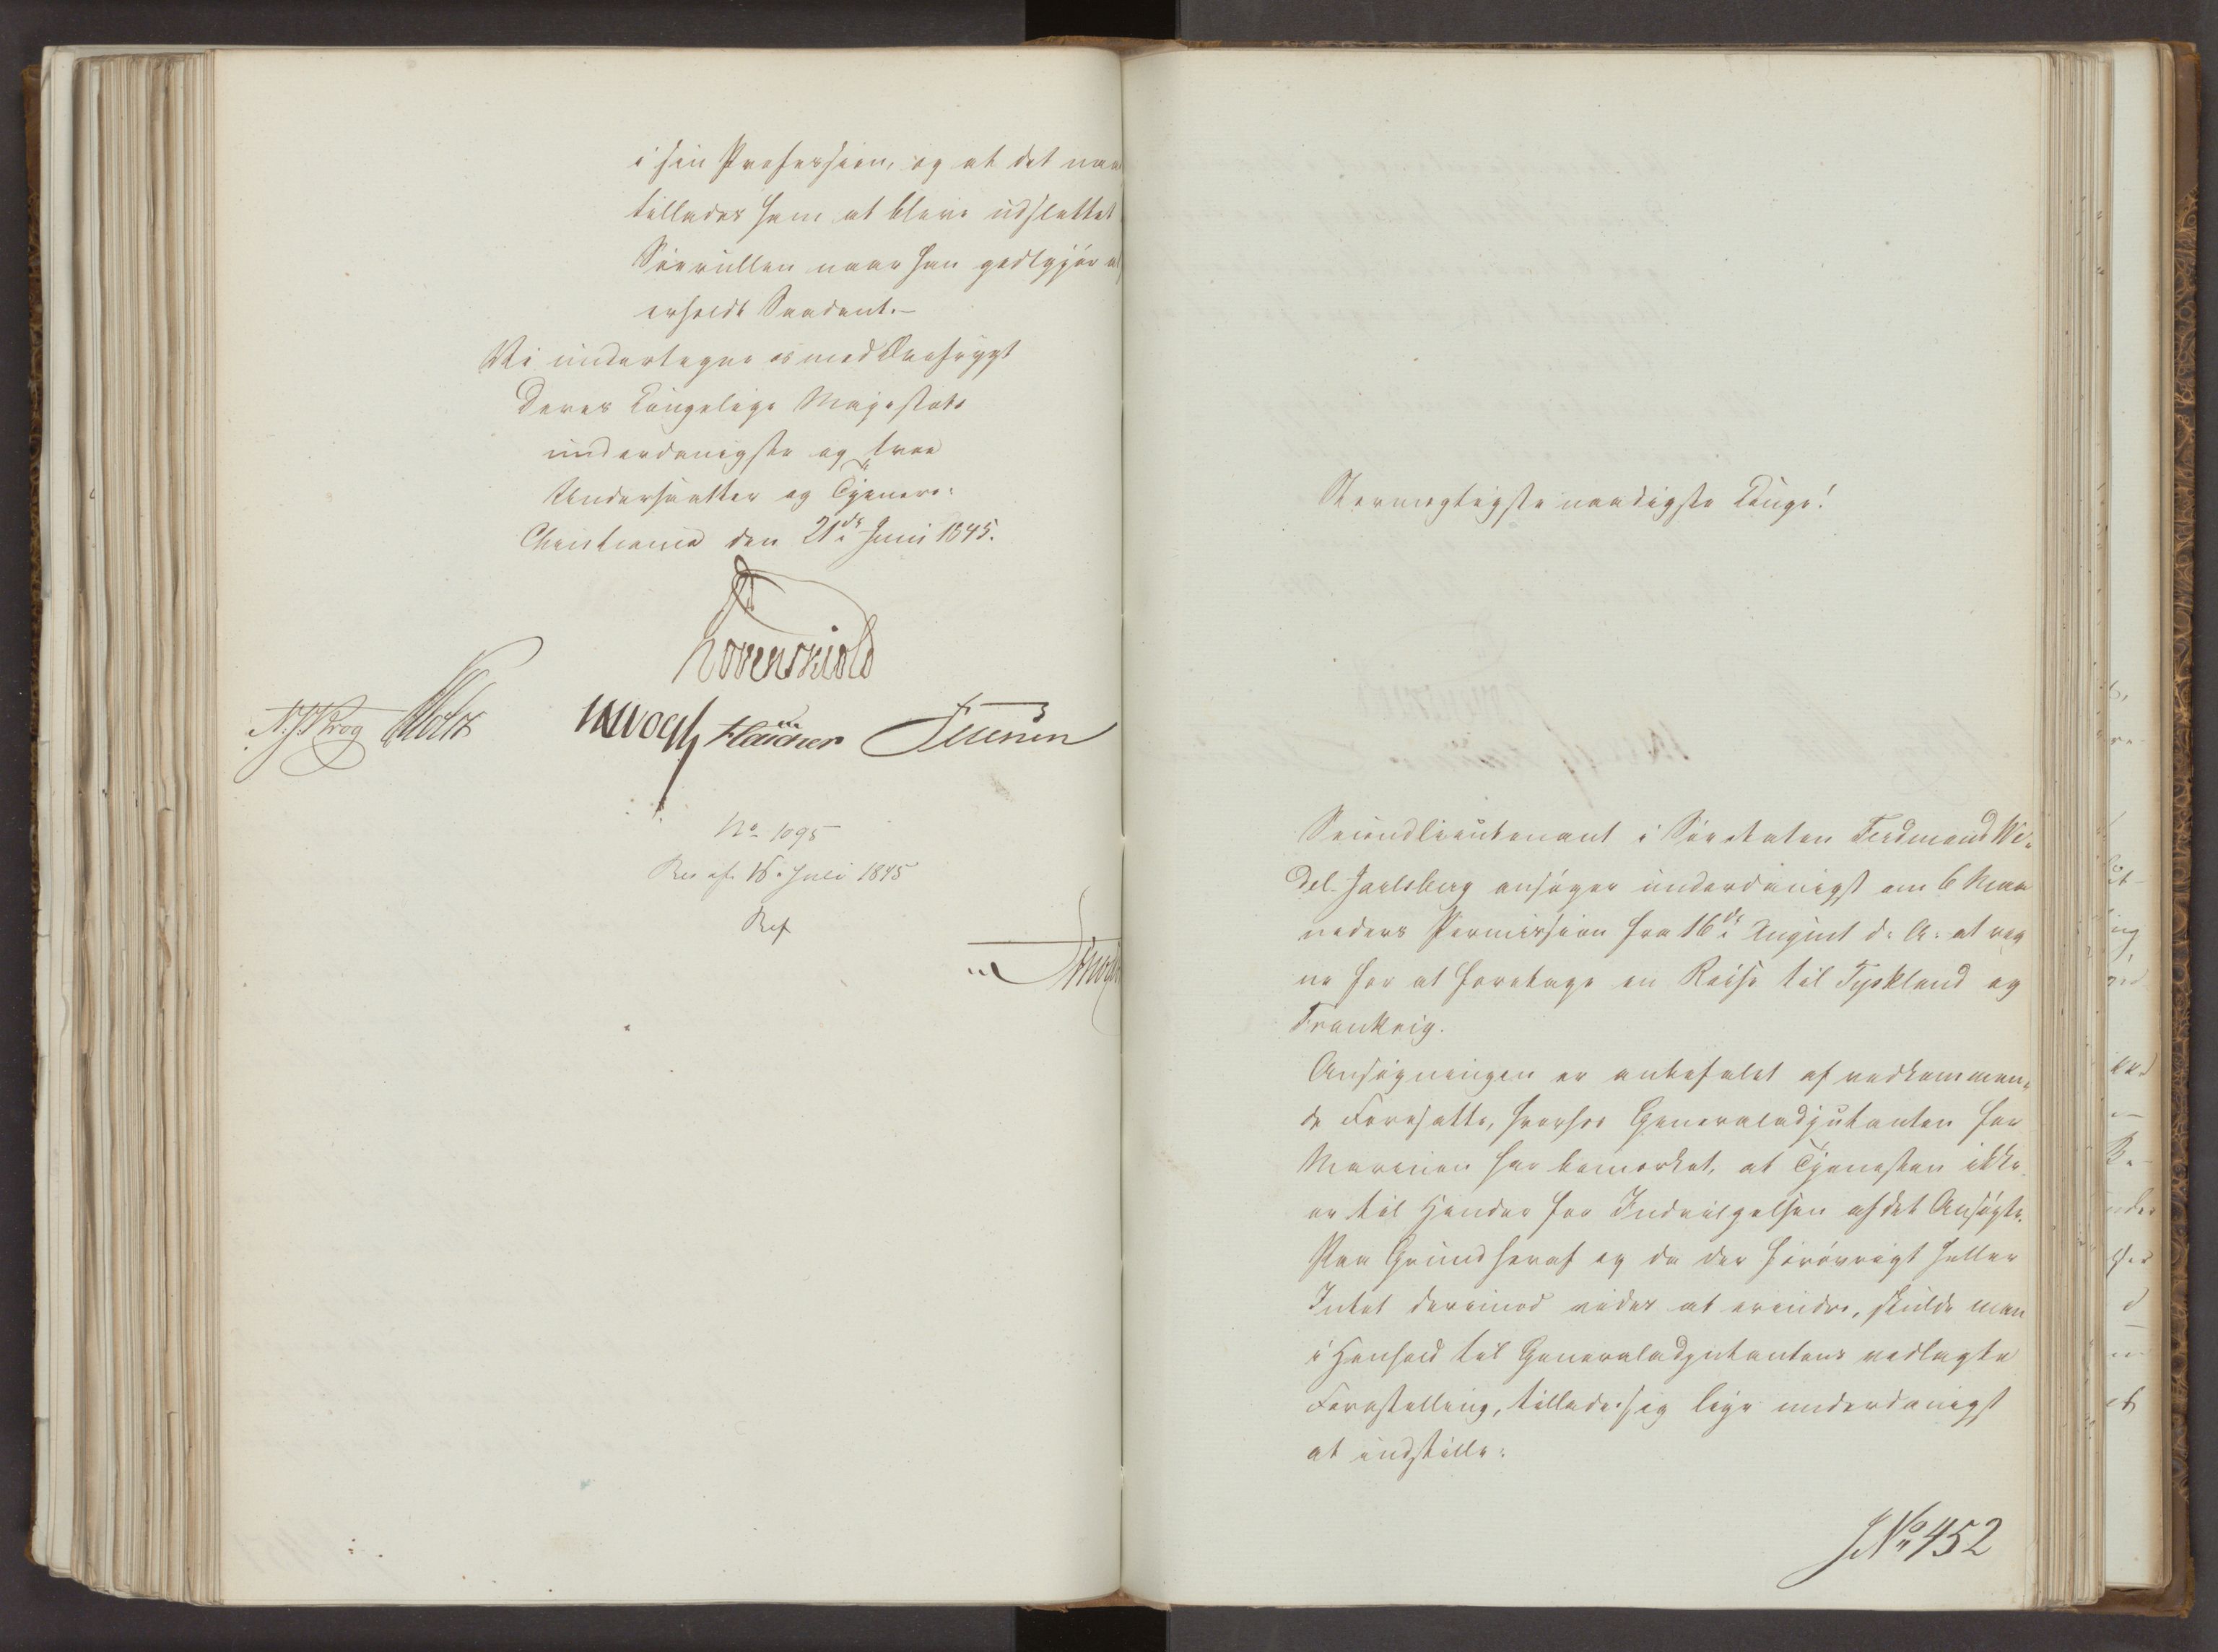 i sin Profession, og at det maa
tillades ham at blive udslettet
Søerullen naar han godtgjør at
erholdt Saadant.-
Vi undertegne os med Ærefrygt
Deres Kongelige Majestæts
underdanigste og troe
Undersaatter og Tjenere:
Christiania den 21de Juni 1845.
Løvenskiold
N. J. Krog Holst JHVogt Flaucher
No 1095
Res af 16. Juli 1845
Ref
Stormægtigste naadigste Konge!
Secondlieutenant i Søeetaten Ferdinand We-
del-Jarlsberg ansøger underdanigst om 6 Maa
neders Permission fra 16de August d: A: at reg
ne for at foretage en Reise til Tyskland og
Frankrig.
Ansøgningen er anbefalet af vedkommen-
de Foresatte, hvorhos Generaladjutanten for
Marinen har bemærket, at Tjenesten ikke
er til Hinder for Indvilgelsen af det Ansøgte.
Paa Grund heraf og da der forøvrigt heller
Intet derimod vides at erindre, skulde man
i Henhold til Generaladjutantens vedlagte
Forestilling, tillade sig lige underdanigst
at indstille:
J.No 452